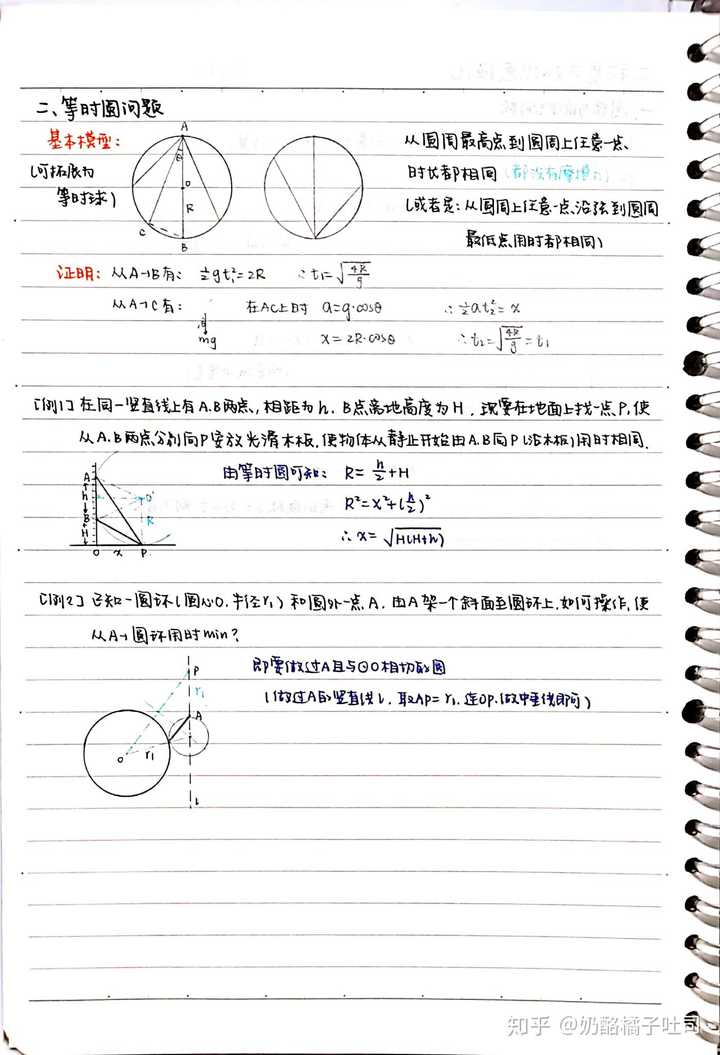 二、等时圆问题
基本模型:
(可拓展为
等时球)
A
θ
O
R
C
B
从圆周最高点到圆周上任意一点、
时长都相同(都没有摩擦力)
(或者是:从圆周上任意一点沿弦到圆周
最低点用时都相同)
证明: 从A→B有: ½gt₁²=2R ∴t₁=√(4R/g)
从A→C有: 在AC上时 a=g·cosθ ∴½at₂²=x
mg x=2R·cosθ ∴t₂=√(4R/g)=t₁
[例1] 在同一竖直线上有A.B两点,相距为h. B点离地高度为H. 现要在地面上找一点P,使
从A.B两点分别向P安放光滑木板,使物体从静止开始由A.B向P(沿木板)用时相同.
由等时圆可知: R=h/2+H
R²=x²+(h/2)²
∴x=√(H(H+h))
A
h
B
H
O'
R
O x P
[例2] 已知一圆环(圆心O.半径r₁)和圆外一点A. 由A架一个斜面至圆环上.如何操作,使
从A→圆环用时min?
即要做过A且与⊙O相切的圆
(做过A的竖直线l. 取AP=r₁.连OP.做中垂线即可)
P
r₁
A
O r₁
l
知乎 @奶酪橘子吐司